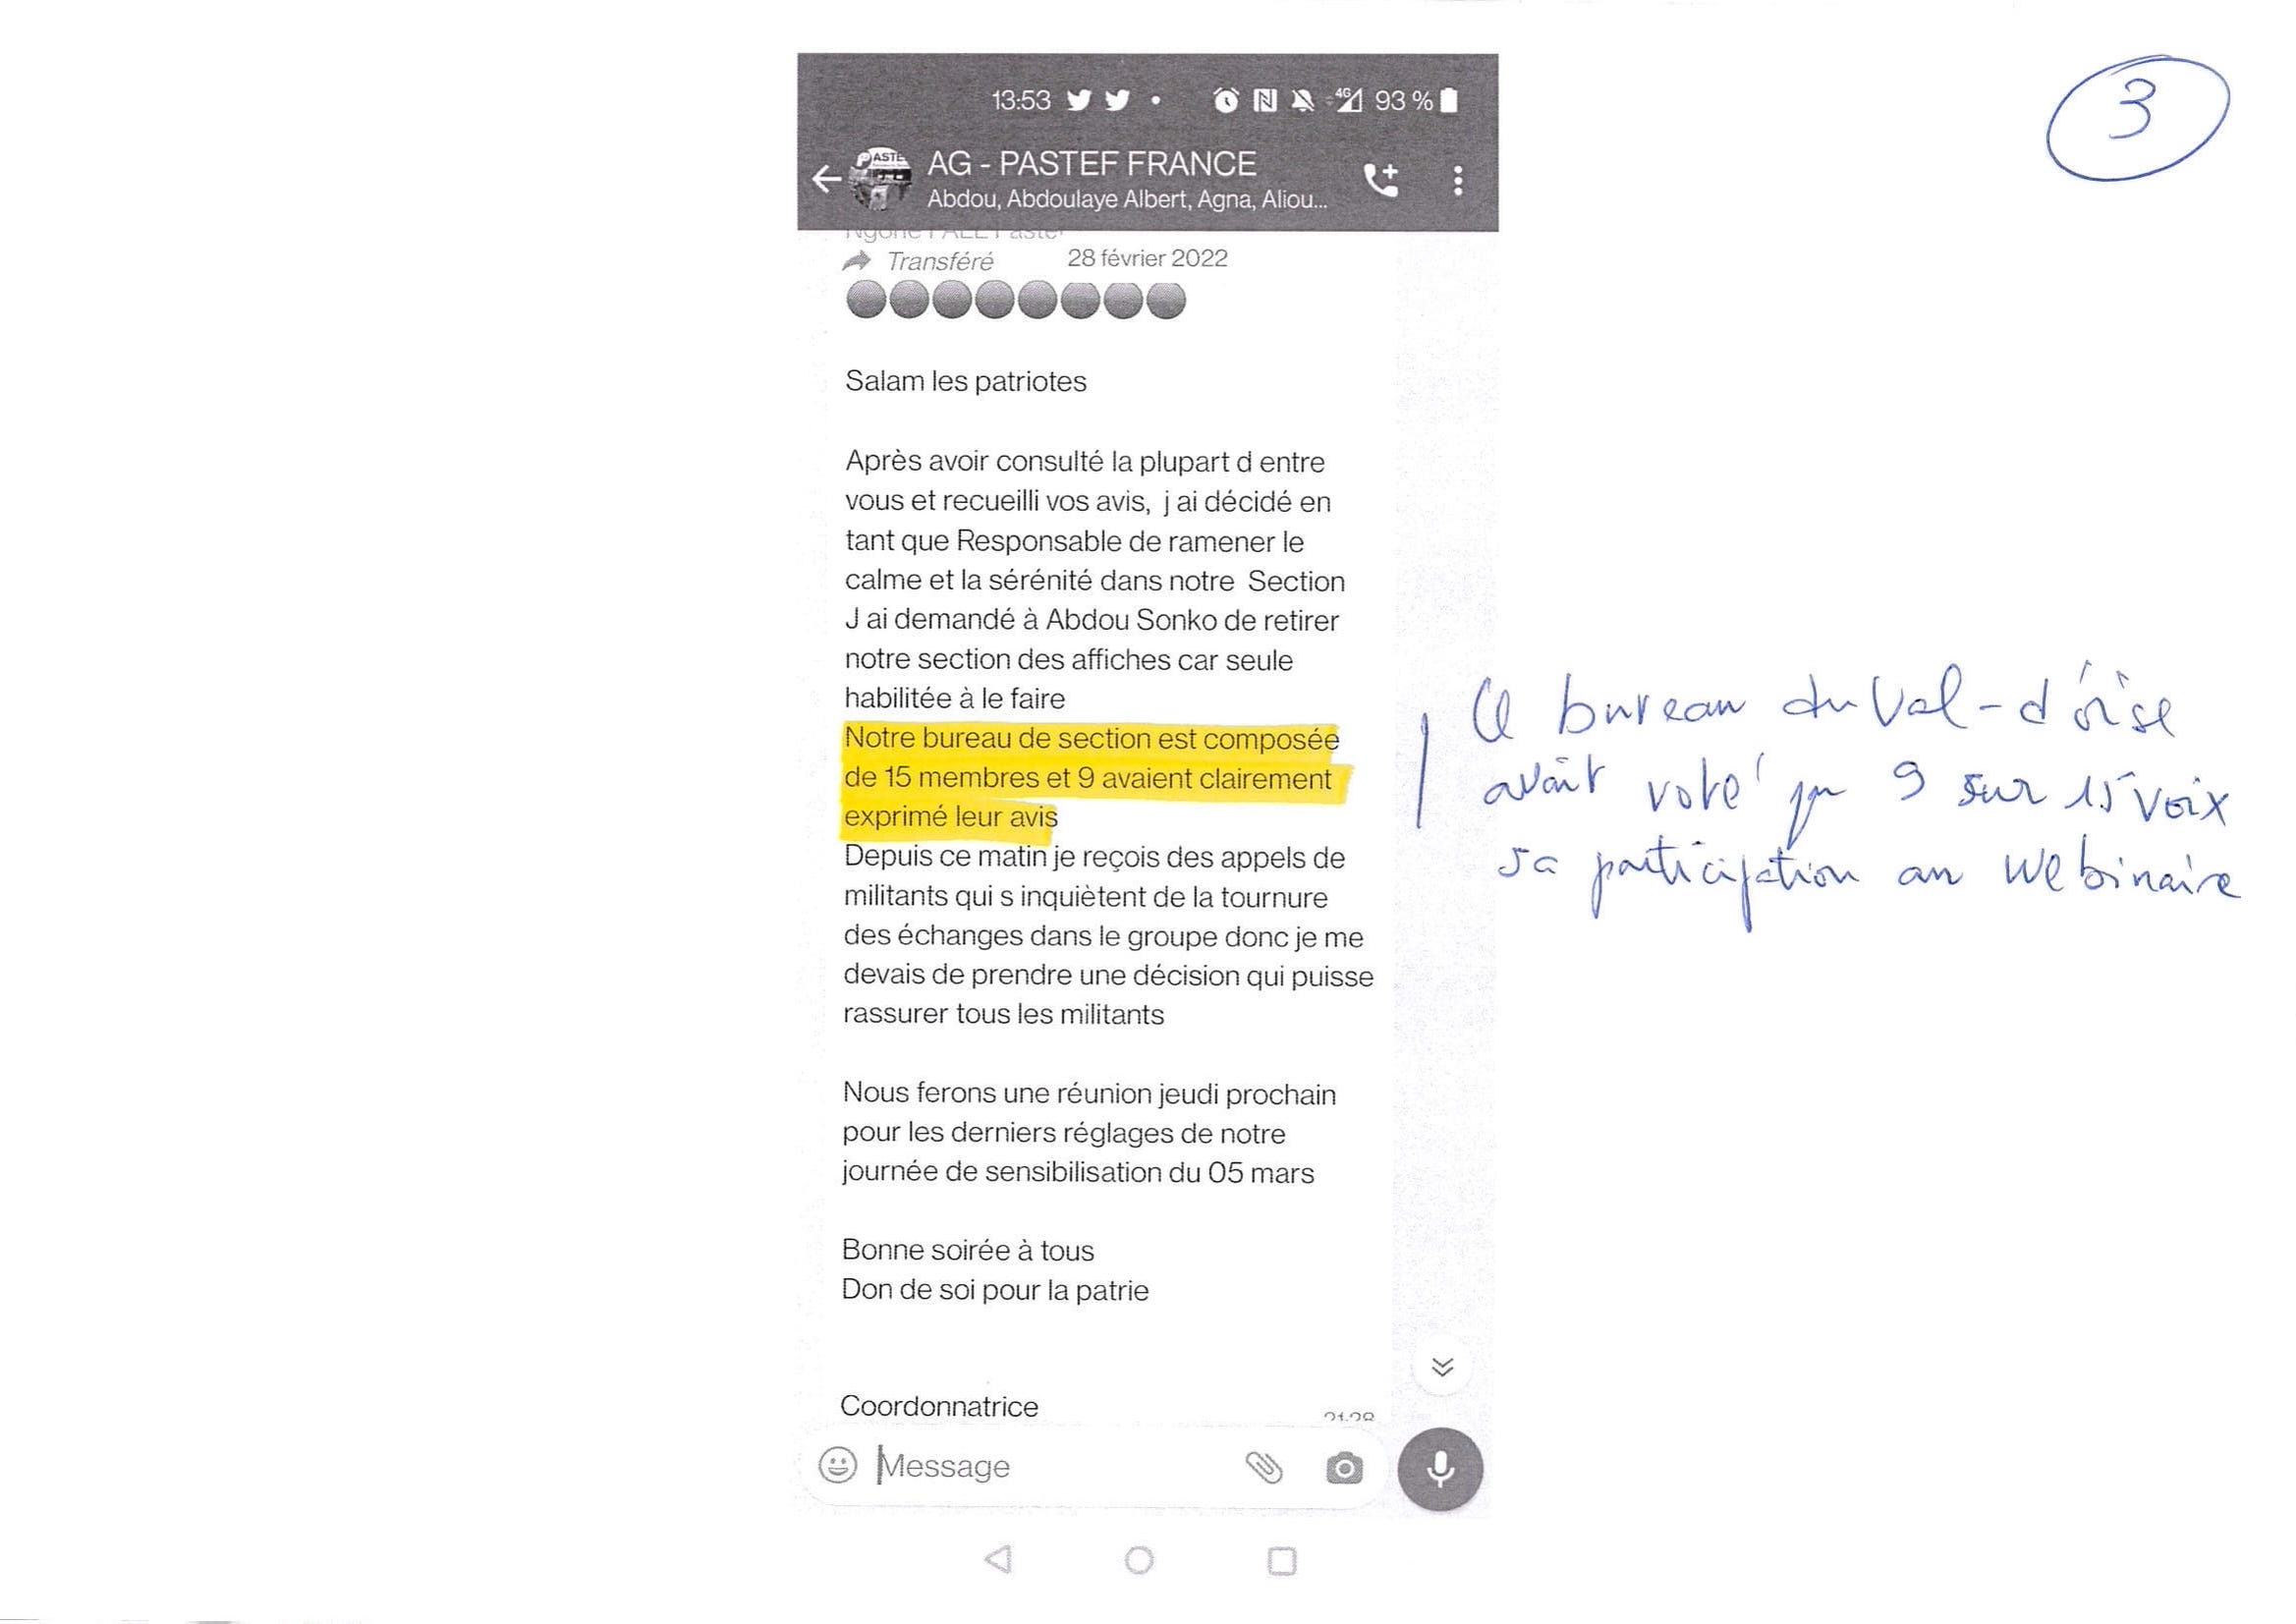 3
13:53 4G 93 %
PASTE
AG - PASTEF FRANCE
Abdou, Abdoulaye Albert, Agna, Aliou...
Transféré 28 février 2022
Salam les patriotes
Après avoir consulté la plupart d entre
vous et recueilli vos avis, j ai décidé en
tant que Responsable de ramener le
calme et la sérénité dans notre Section
J ai demandé à Abdou Sonko de retirer
notre section des affiches car seule
habilitée à le faire
Notre bureau de section est composée
de 15 membres et 9 avaient clairement
exprimé leur avis
Depuis ce matin je reçois des appels de
militants qui s inquiètent de la tournure
des échanges dans le groupe donc je me
devais de prendre une décision qui puisse
rassurer tous les militants
Nous ferons une réunion jeudi prochain
pour les derniers réglages de notre
journée de sensibilisation du 05 mars
Bonne soirée à tous
Don de soi pour la patrie
Coordonnatrice 21:28
Message
bureau du Val-d'oise
avait voté par 9 sur 15 voix
sa participation au webinaire